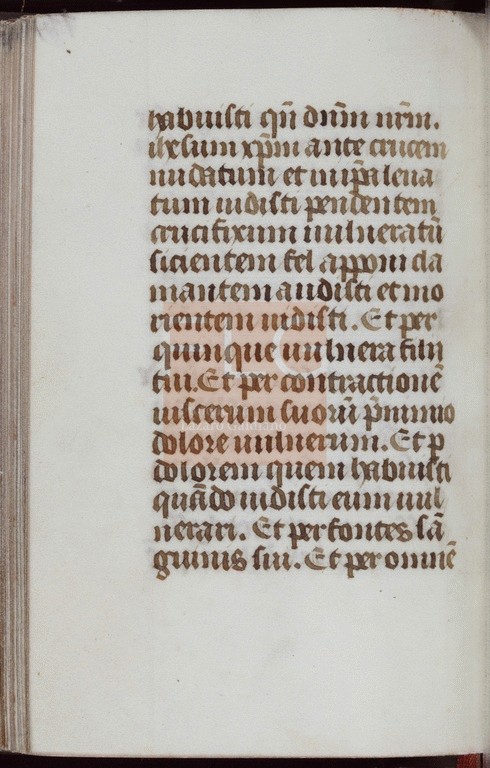 habuisti qñ dñm nr̃m.
ihesum xp̃m ante crucem
nudatum et in ip̃a leua
tum uidisti pendentem
crucifixum uulneratũ
sicientem fel apponi cla
mantem audisti et mo
rientem uidisti. Et per
quinque uulnera filii
tui. Et per contractionẽ
uiscerum suorũ p̃ nimio
dolore uulnerum. Et p
dolorem quem habuisti
quãdo uidisti eum uul
nerari. Et per fontes sã
guinis sui. Et per omnẽ